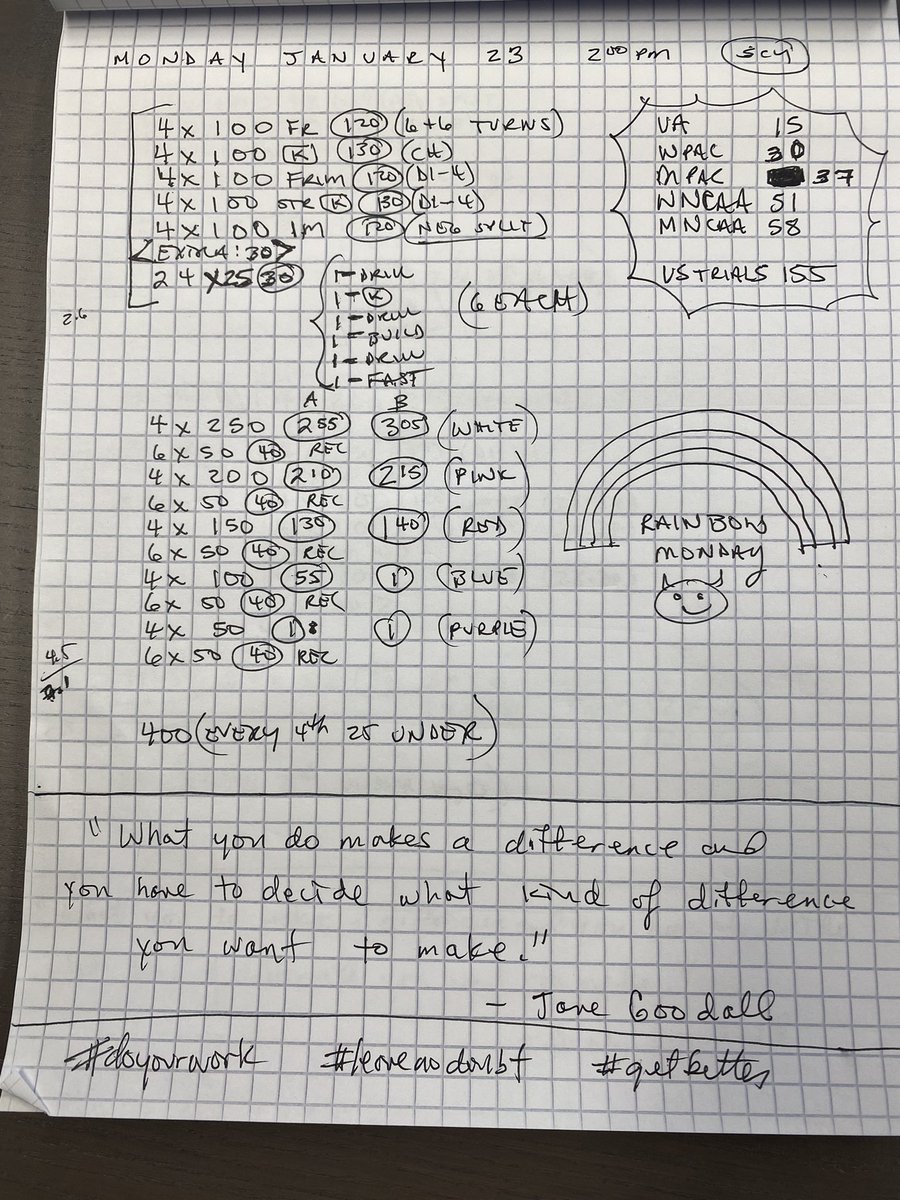 MONDAY JANUARY 23 2:00 PM SCY
4 x 100 FR 120 (6+6 TURNS)
4 x 100 K 130 (CH)
4 x 100 FRIM 120 (D1-4)
4 x 100 STR K 130 (D1-4)
4 x 100 IM 120 (NEG SPLIT)
<EXTRA :30>
24 x 25 30
1-DRILL
1-K
1-DRILL
1-BUILD
1-DRILL
1-FAST
(6 EACH)
UVA 15
WPAC 30
MPAC 37
WNCAA 51
MNCAA 58
US TRIALS 155
2.6
A B
4 x 250 255 305 (WHITE)
6 x 50 40 REC
4 x 200 210 215 (PINK)
6 x 50 40 REC
4 x 150 130 140 (RED)
6 x 50 40 REC
4 x 100 55 1 (BLUE)
6 x 50 40 REC
4 x 50 1 1 (PURPLE)
6 x 50 40 REC
4.5
RAINBOW
MONDAY
400 (EVERY 4th 25 UNDER)
"What you do makes a difference and
you have to decide what kind of difference
you want to make."
- Jane Goodall
#doyourwork #leavenodoubt #getbetter